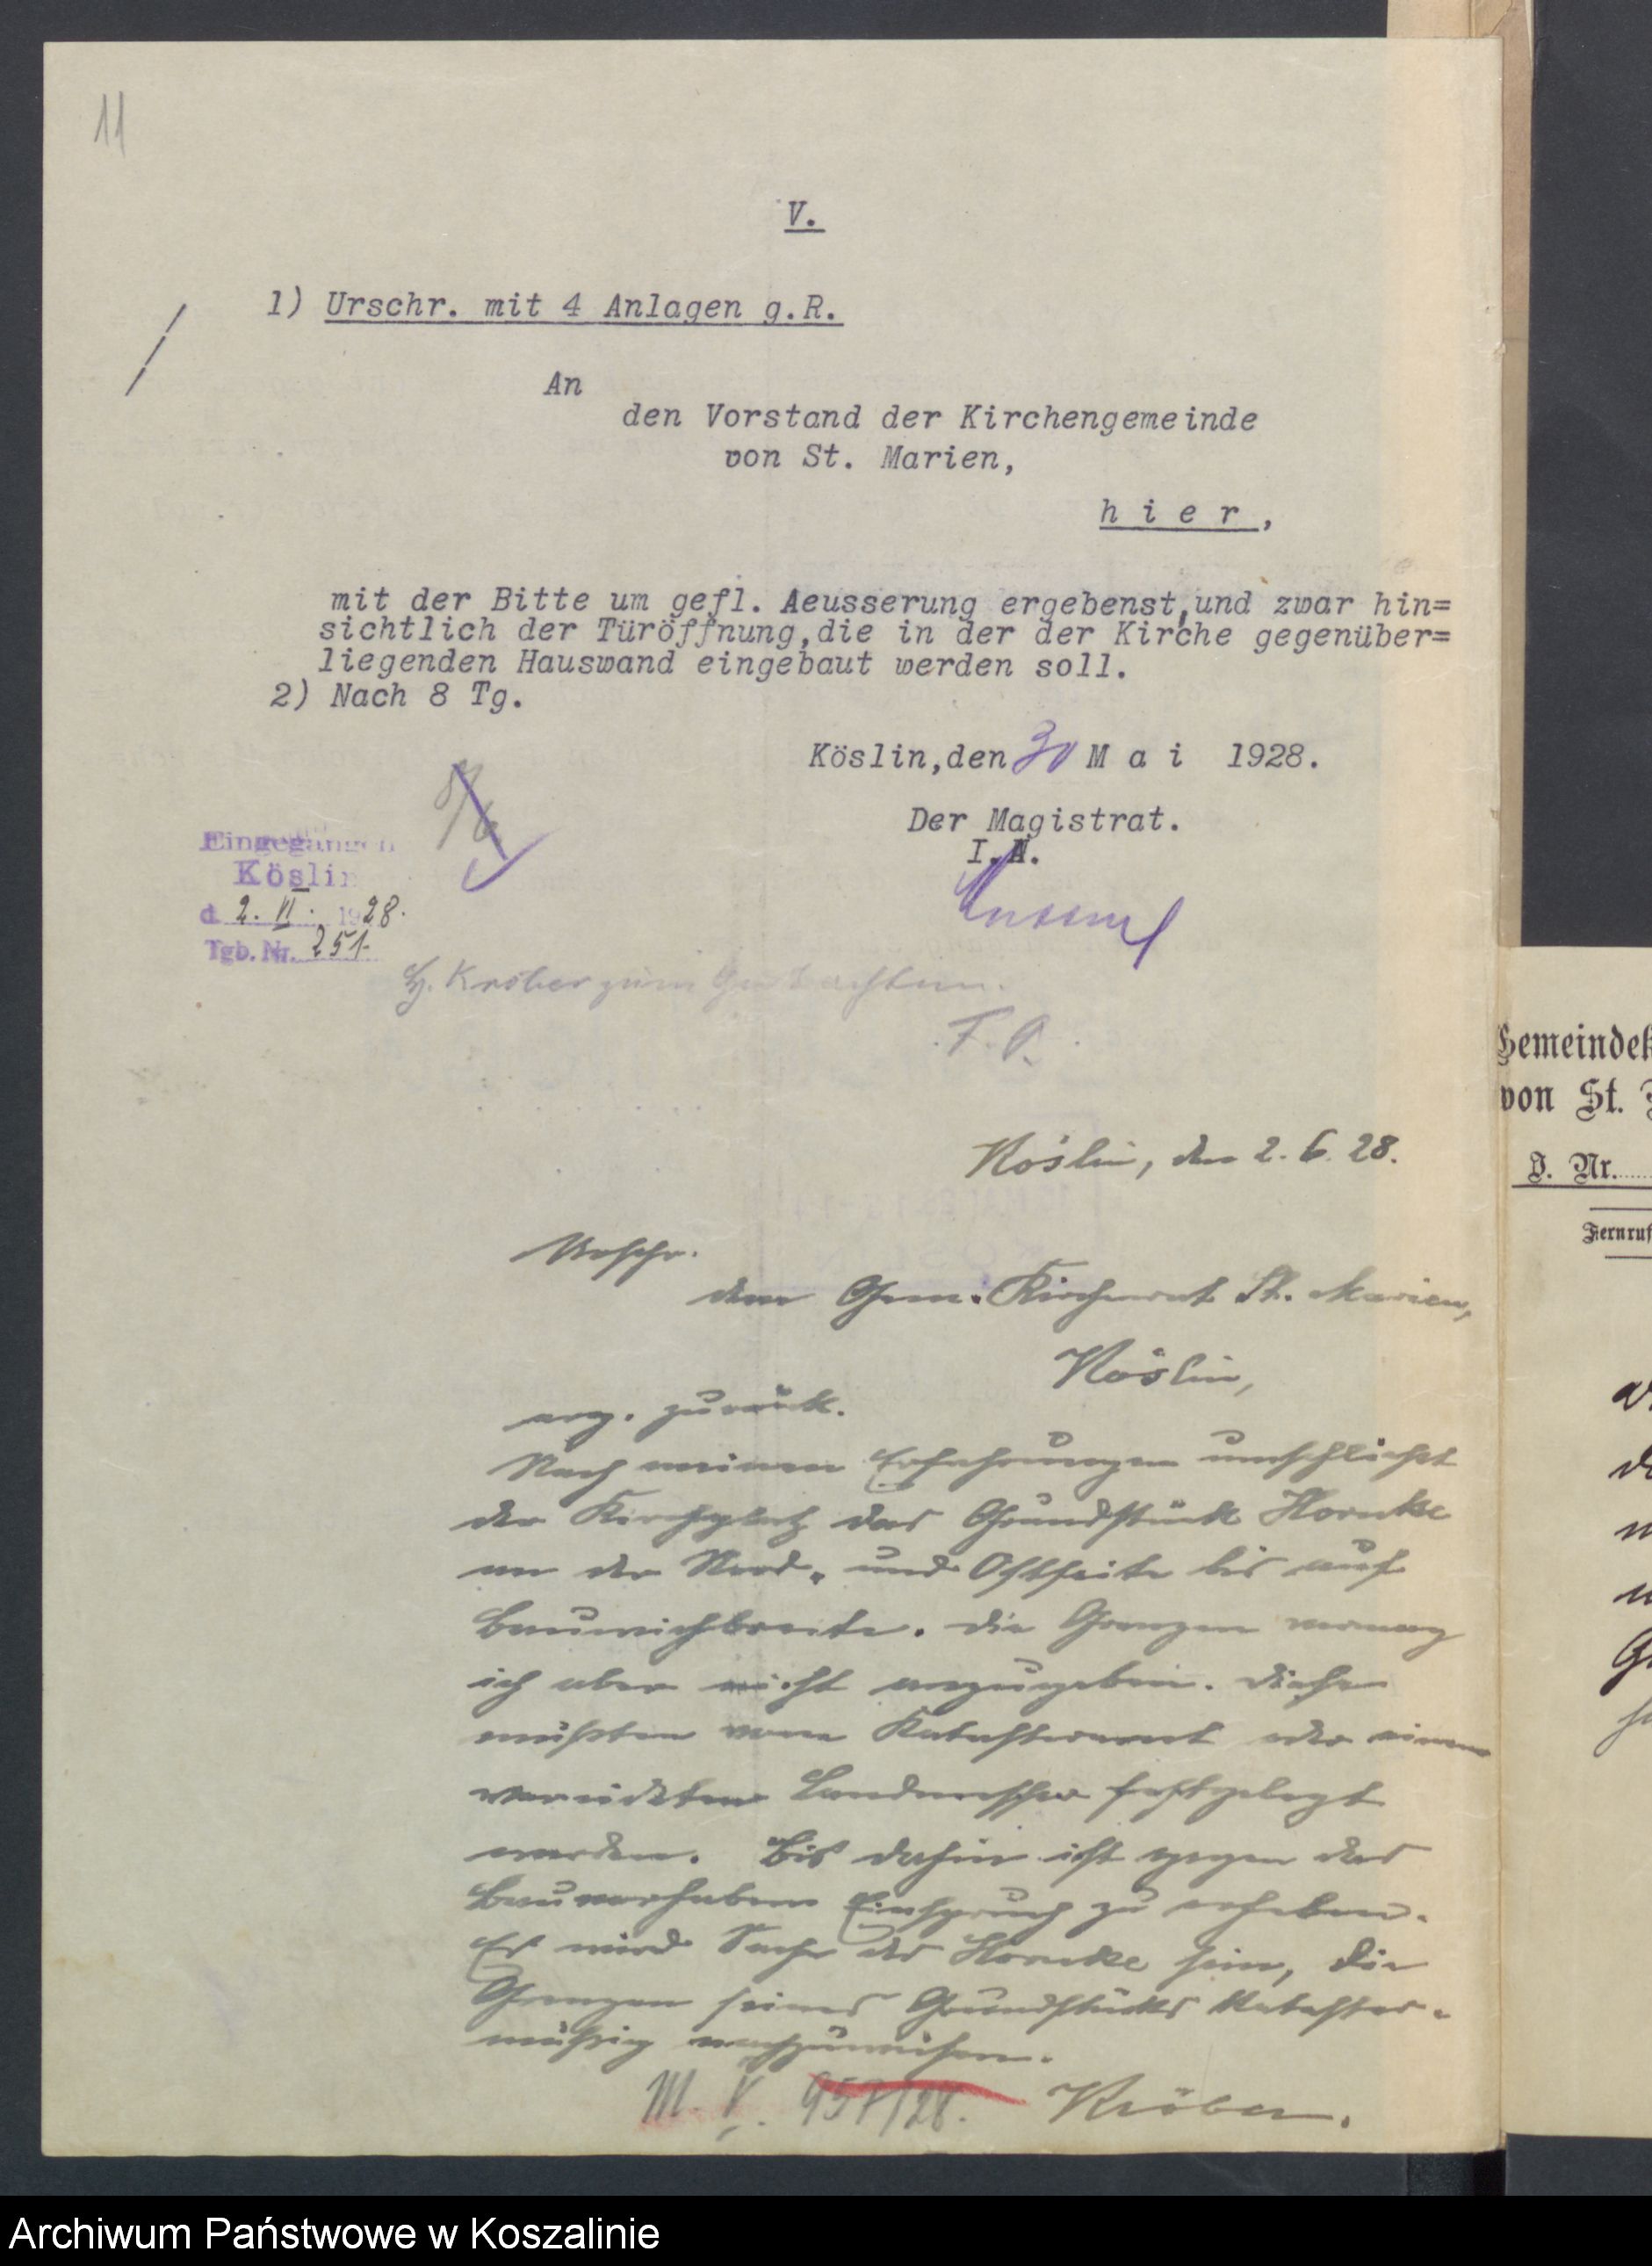 11
V.
1) Urschr. mit 4 Anlagen g.R.
An
den Vorstand der Kirchengemeinde
von St. Marien,
h i e r ,
mit der Bitte um gefl. Aeusserung ergebenst,und zwar hin=
sichtlich der Türöffnung,die in der der Kirche gegenüber=
liegenden Hauswand eingebaut werden soll.
2) Nach 8 Tg.
Köslin,den 30 M a i 1928.
8/6
Der Magistrat.
I.A.
Eingegangen
Köslin
d. 2. VI. 1928.
Tgb. Nr. 251
H. Kröber zum Gutachten.
Köslin, den 2. 6. 28.
Urschr.
dem Gem. Kirchenrat St. Marien,
Köslin,
erg. zurück.
Nach meinen Erfahrungen umschließt
der Kirchplatz das Grundstück Hornke
an der Nord- und Ostseite bis auf
Bauwichbreite. Die Grenzen vermag
ich aber nicht anzugeben. Diese
müßten vom Katasteramt oder einem
vereideten Landmesser festgelegt
werden. Bis dahin ist gegen das
Bauvorhaben Einspruch zu erheben.
Es wird Sache des Hornke sein, die
Grenzen seines Grundstücks kataster-
mäßig nachzuweisen.
M. V. 957/28. Kröber.
Gemeindek
von St.
J. Nr.
Fernruf
Archiwum Państwowe w Koszalinie